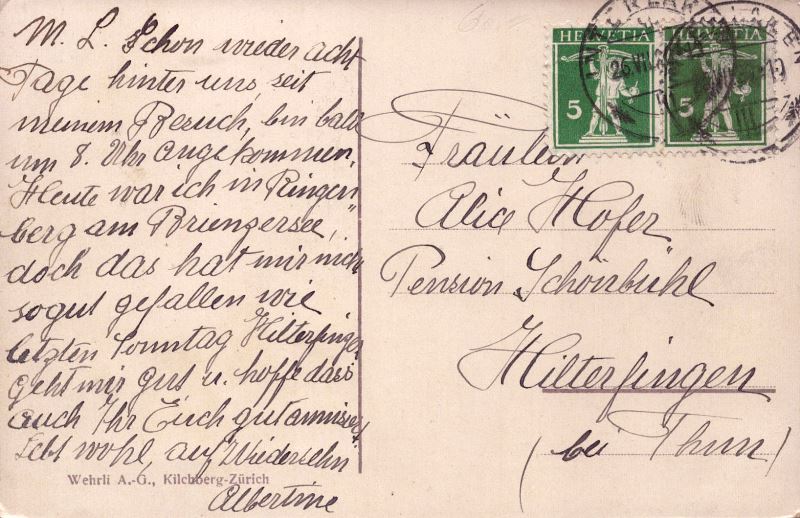 M. L. Schon wieder acht
Tage hinter uns, seit
meinem Besuch, bin bald
um 8. Uhr angekommen.
Heute war ich in Ringen
berg am Brienzersee,
doch das hat mir nicht
so gut gefallen wie
letzten Sonntag Hilterfingen
Geht mir gut u. hoffe dass
auch Ihr Euch gut amüsiert
Lebt wohl, auf Wiedersehn
Albertine
Wehrli A.-G., Kilchberg-Zürich
HELVETIA HELVETIA
5 5
INTERLAKEN
26.VII.
Fräulein
Alice Hofer
Pension Schönbühl
Hilterfingen
(bei Thun)